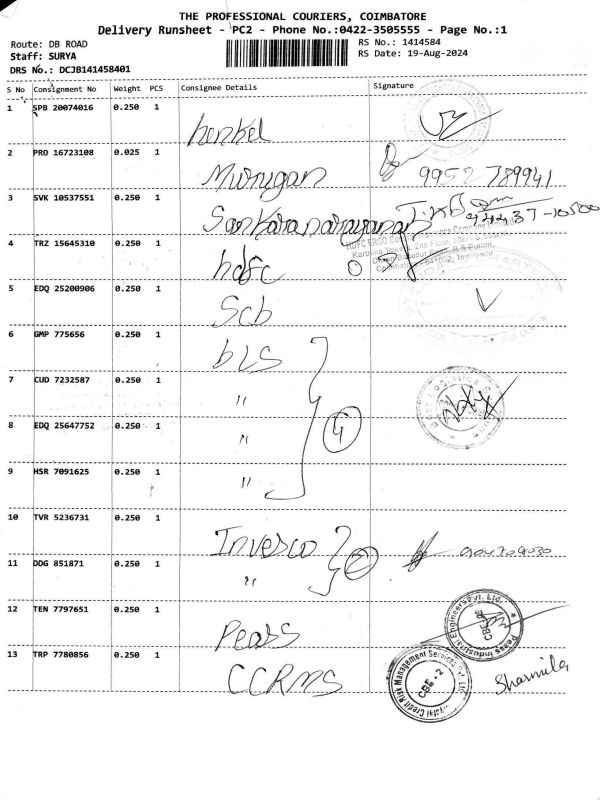 THE PROFESSIONAL COURIERS, COIMBATORE
Delivery Runsheet - PC2 - Phone No.:0422-3505555 - Page No.:1
Route: DB ROAD
RS No.: 1414584
Staff: SURYA
RS Date: 19-Aug-2024
DRS No.: DCJB141458401
S No Consignment No Weight PCS Consignee Details Signature
1 SPB 20074016 0.250 1 henkel
2 PRO 16723108 0.025 1 Murugan 9952789941
3 SVK 10537551 0.250 1 Sankaranarayanan
4 TRZ 15645310 0.250 1 hdfc
5 EDQ 25200906 0.250 1 Scb
6 GMP 775656 0.250 1 bLS
7 CUD 7232587 0.250 1 "
8 EDQ 25647752 0.250 1 "
9 HSR 7091625 0.250 1 "
10 TVR 5236731 0.250 1 Invesco
11 DDG 851871 0.250 1 "
12 TEN 7797651 0.250 1 Peass
Peass Industrial Engineers Pvt. Ltd.
13 TRP 7780856 0.250 1 CCRMS
Credit Risk Management Services Pvt. Ltd.
CBE - 2
Sharmila